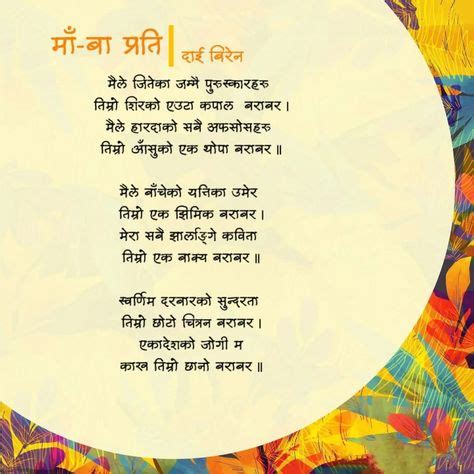 माँ-बा प्रति | दाई बिरेन
मैले जितेका जम्मै पुरुस्कारहरु
तिम्रो शिरको एउटा कपाल बराबर।
मैले हारदाको सबै अफसोसहरु
तिम्रो आँसुको एक थोपा बराबर॥
मैले बाँचेको यत्तिका उमेर
तिम्रो एक झिमिक बराबर।
मेरा सबै झार्लाङ्गे कविता
तिम्रो एक बाक्य बराबर॥
स्वर्णिम दरबारको सुन्दरता
तिम्रो छोटो चित्रन बराबर।
एकादेशको जोगी म
काख तिम्रो छानो बराबर॥